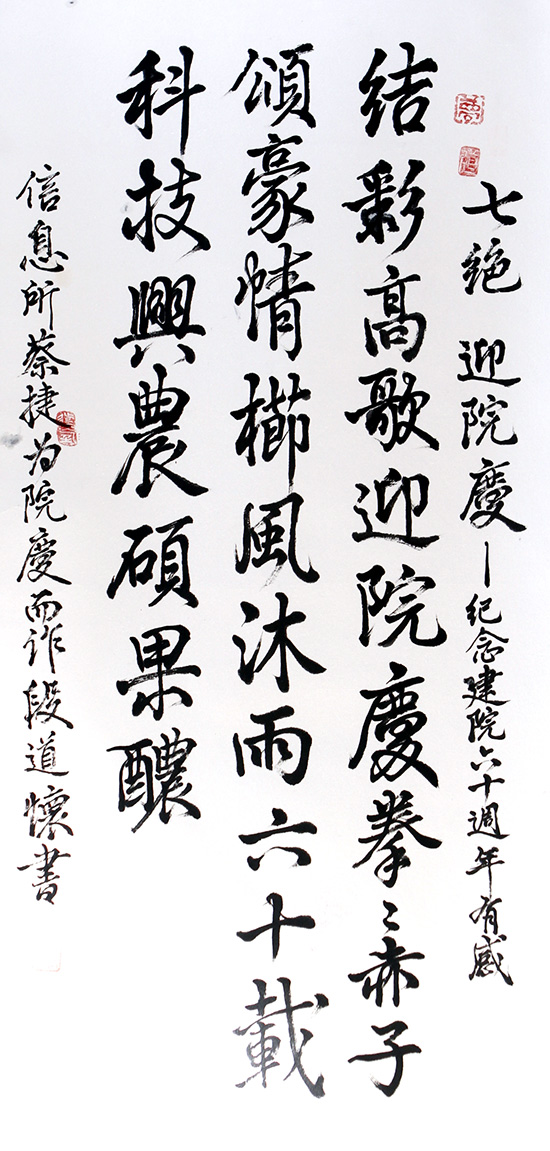 七绝 迎院慶—纪念建院六十週年有感
结彩高歌迎院慶拳〻赤子
頌豪情櫛風沐雨六十載
科技興農碩果醲
信息所蔡捷为院慶而诈段道懷書